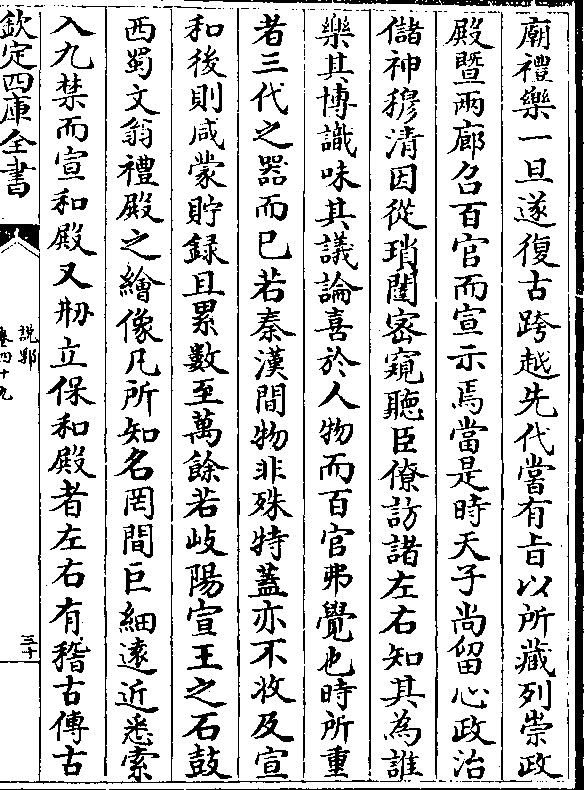 廟禮樂一旦遂復古跨越先代嘗有旨以所藏列崇政
殿暨兩廊召百官而宣示焉當是時天子尚留心政治
儲神穆清因從瑣闥密窺聽臣僚訪諸左右知其為誰
樂其博識味其議論喜於人物而百官弗覺也時所重
者三代之器而已若秦漢間物非殊特蓋亦不收及宣
和後則咸蒙貯錄且累數至萬餘若岐陽宣王之石鼓
西蜀文翁禮殿之繪像凡所知名罔間巨細遠近悉索
入九禁而宣和殿又刱立保和殿者左右有稽古傳古
欽定四庫全書
說郛
卷四十九
三十